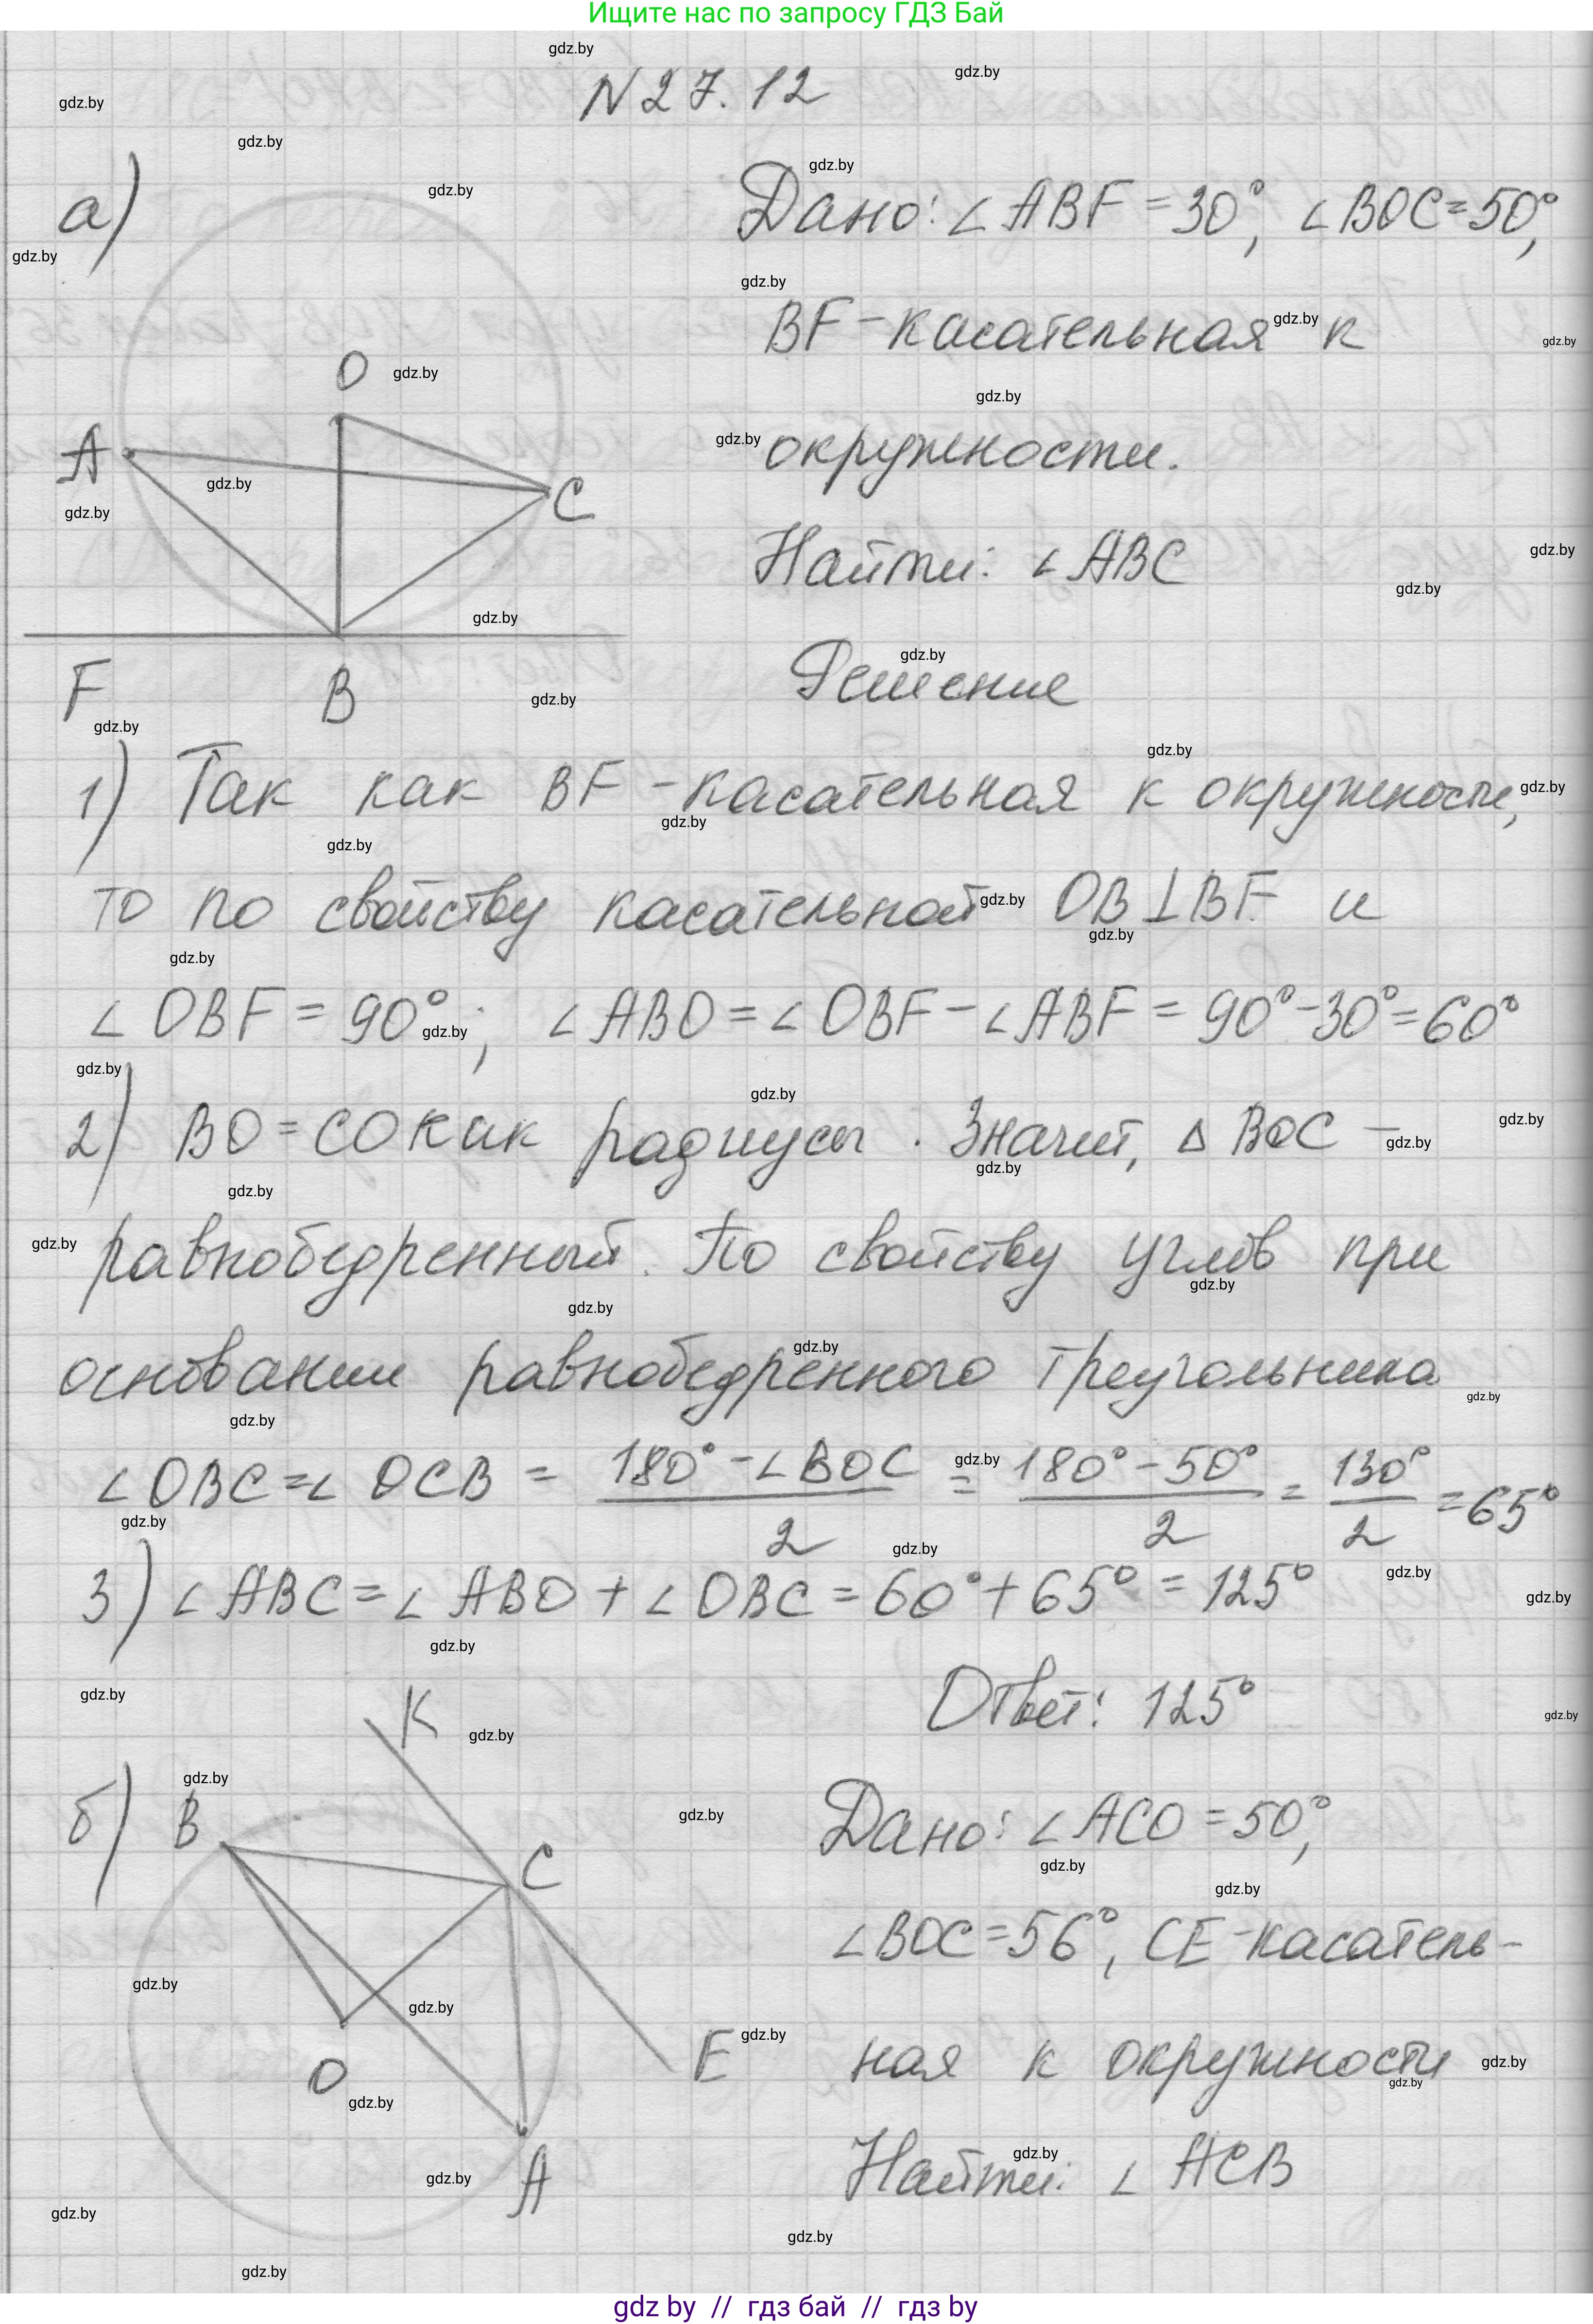 Ищите нас по запросу ГДЗ Бай
N 27.12
а)
Дано: ∠ABF = 30°, ∠BOC = 50°,
BF - касательная к
окружности.
Найти: ∠ABC
Решение
O
A
C
F
B
1) Так как BF - касательная к окружности,
то по свойству касательной OB⊥BF и
∠OBF = 90°; ∠ABO = ∠OBF - ∠ABF = 90° - 30° = 60°
2) BO = CO как радиусы. Значит, △BOC -
равнобедренный. По свойству углов при
основании равнобедренного треугольника
∠OBC = ∠OCB = (180° - ∠BOC)/2 = (180° - 50°)/2 = 130°/2 = 65°
3) ∠ABC = ∠ABO + ∠OBC = 60° + 65° = 125°
Ответ: 125°
б)
K
B
C
O
E
A
Дано: ∠ACO = 50°,
∠BOC = 56°, CE - касатель-
ная к окружности
Найти: ∠ACB
gdz by // гдз бай // гдз by
gdz.by